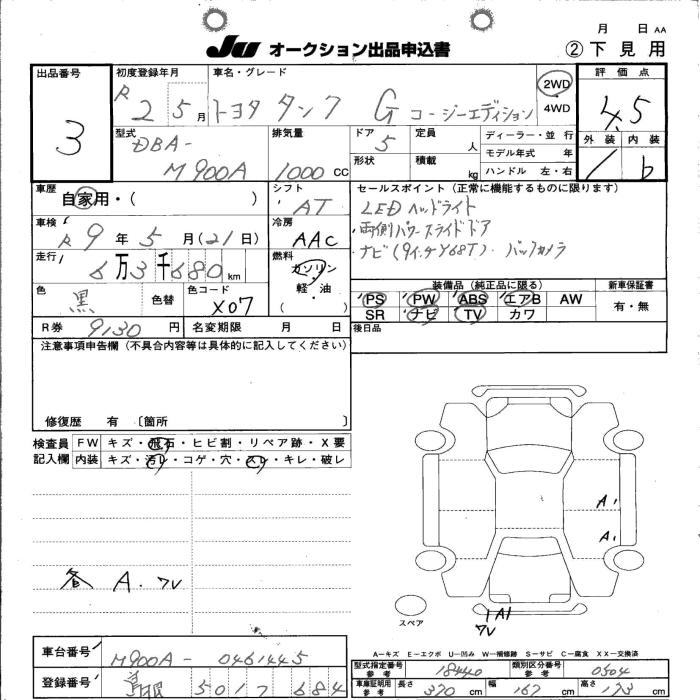 月 日 AA
JU オークション出品申込書
② 下見用
出品番号
3
初度登録年月
R 2 5月
車名・グレード
トヨタ タンク G コージーエディション
2WD
4WD
評価点
4.5
外装 内装
1 b
型式
DBA-
M900A
排気量
1000 CC
ドア
5
定員
人
形状
積載
kg
ディーラー・並 行
モデル年式 年
ハンドル 左・右
車歴
自家用・( )
シフト
AT
車検
R 9 年 5 月 (21日)
冷房
AAC
走行
6万3千680 km
燃料
ガソリン
・
軽・油
・
( )
色
黒
色替
色コード
X07
R券 9130 円
名変期限 月 日
セールスポイント(正常に機能するものに限ります)
LEDヘッドライト
両側パワースライドドア
ナビ(9インチY68T)・バックカメラ
装備品(純正品に限る)
PS PW ABS エアB AW
SR ナビ TV カワ
新車保証書
有・無
後日品
注意事項申告欄(不具合内容等は具体的に記入してください)
修復歴 有 〔箇所 〕
検査員
記入欄
FW キズ・飛石・ヒビ割・リペア跡・X要
内装 キズ・汚レ・コゲ・穴・スレ・キレ・破レ
A. フレ
A1
A1
A1
スペア
A-キズ E-エクボ U-凹み W-補修跡 S-サビ C-腐食 XX-交換済
車台番号
M900A-0461445
登録番号
501 7 684
型式指定番号
参考
18440
類別区分番号
参考
0504
車庫証明用
参考
長さ 370 cm
幅 167 cm
高さ 173 cm